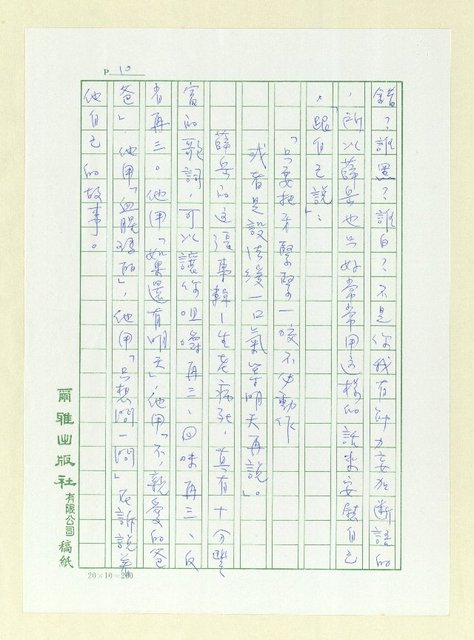 P 10
錯？誰黑？誰白？不是你我有能力妄加斷語的
，所以薛岳也只好常常用這樣的話來安慰自己
，「跟自己說」：
「只要把牙緊緊一咬不必動作
或者是設法緩一口氣等明天再說」。
薛岳的這張專輯—生老病死，真有十分豐
富的歌詞，可以讓你咀嚼再三、回味再三、反
省再三。他用「如果還有明天」，他用「不，親愛的爸
爸」他用「血腥瑪麗」，他用「只想問一問」在訴說著
他自己的故事。
爾雅出版社有限公司稿紙
20×10=200